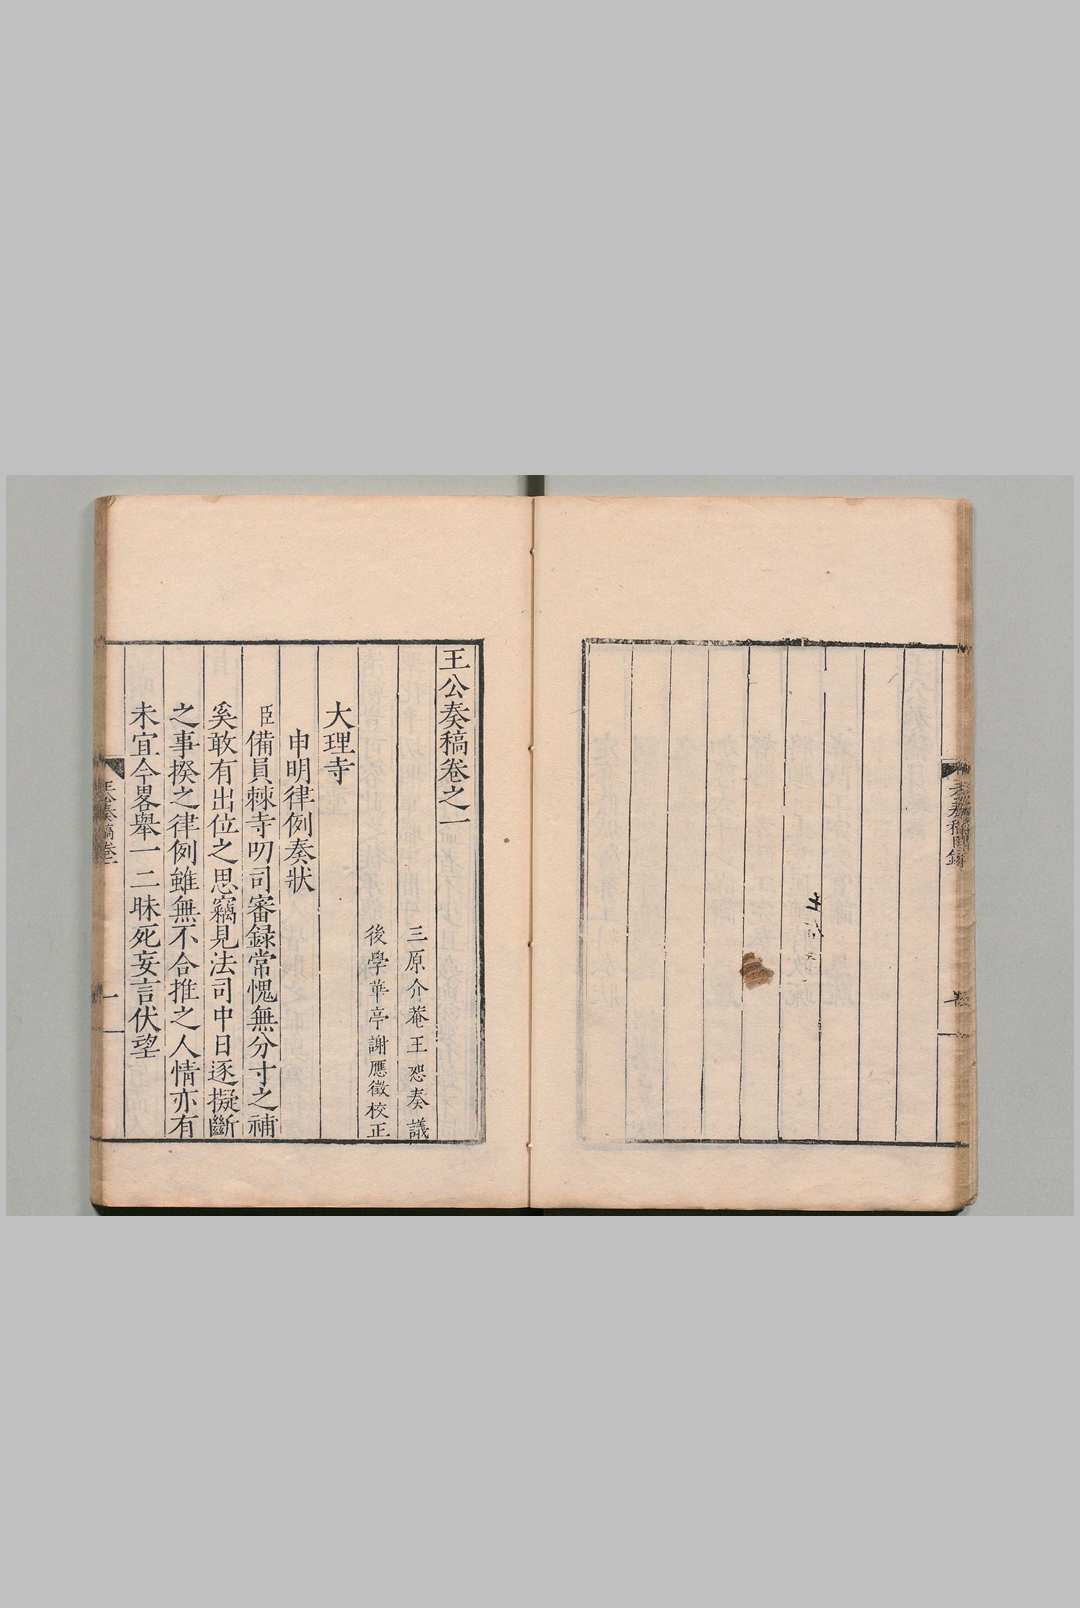 王公奏稿卷之一
三原介菴王恕奏議
後學華亭謝應徵校正
大理寺
申明律例奏狀
臣備員棘寺叨司審録常愧無分寸之補
奚敢有出位之思竊見法司中日逐擬斷
之事揆之律例雖無不合推之人情亦有
未宜今畧舉一二昧死妄言伏望
王公奏稿卷一
一